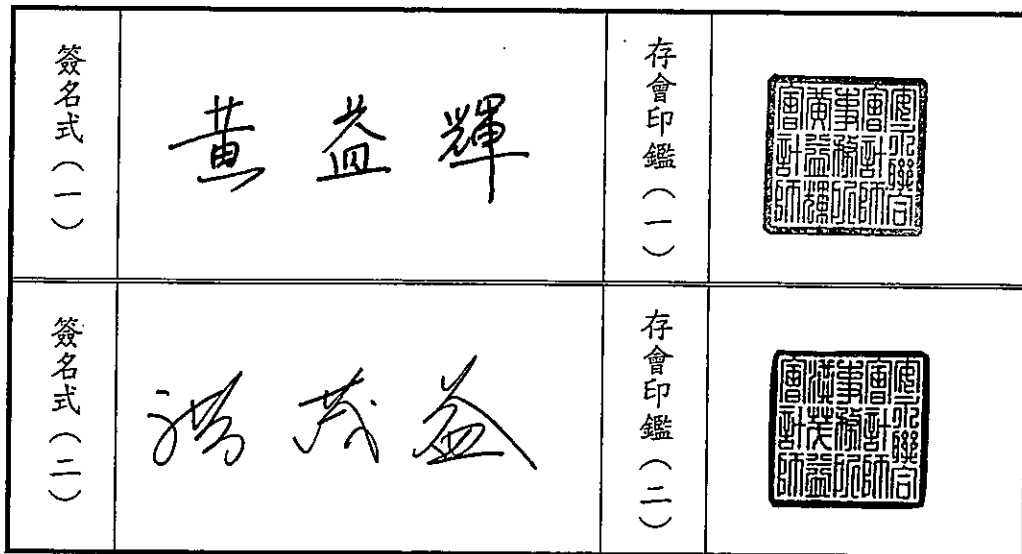 簽名式（一）
黃益輝
存會印鑑（一）
安永聯合
會計師
事務所
黃益輝
會計師
簽名式（二）
洪茂益
存會印鑑（二）
安永聯合
會計師
事務所
洪茂益
會計師